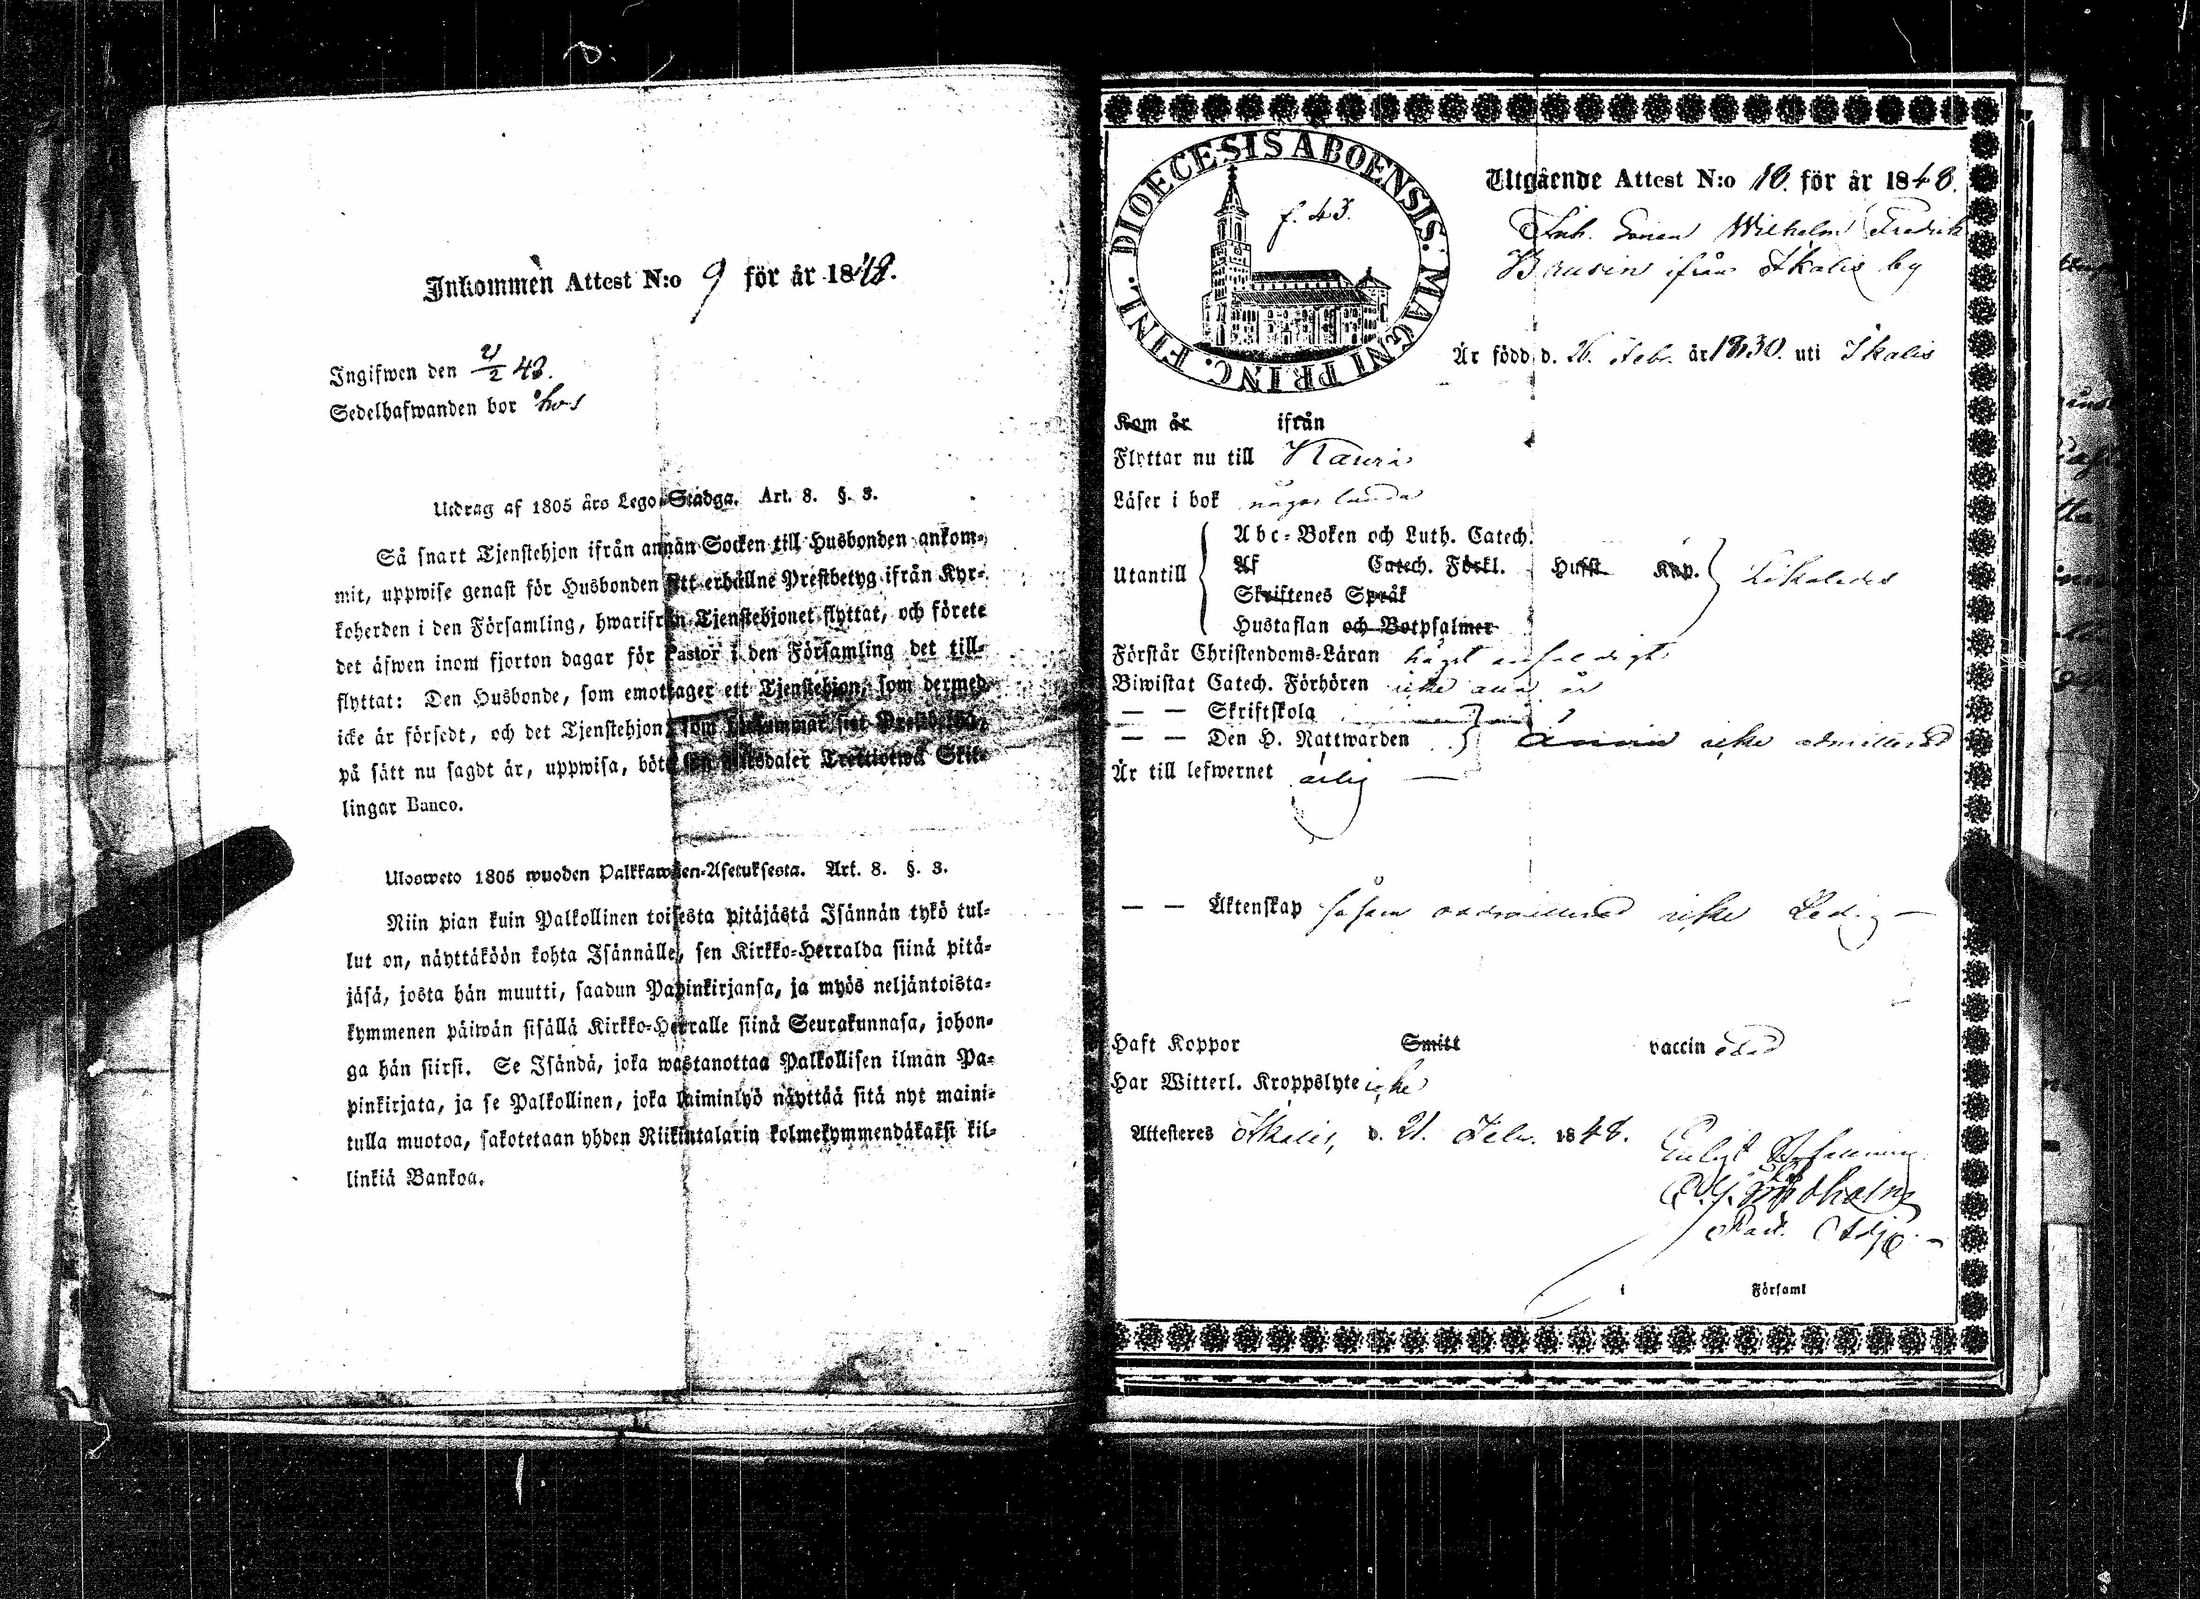 Inkommen Attest N:o 9 för år 1848.
Ingifwen den 21/2 48.
Sedelhafwanden bor hos
Utdrag af 1805 års Lego-Stadga. Art. 8. §. 3.
Så snart Tjenstehjon ifrån annan Socken till Husbonden ankom-
mit, uppwise genast för Husbonden sitt erhållne Prestbetyg ifrån Kyr-
koherden i den Församling, hwarifrån Tjenstehjonet flyttat, och förete
det äfwen inom fjorton dagar för Pastor i den Församling det till-
flyttat: Den Husbonde, som emottager ett Tjenstehjon, som dermed
icke är försedt, och det Tjenstehjon, som
på sätt nu sagdt är, uppwisa, böte en Riksdaler Trettiotwå Skil-
lingar Banco.
Ulosweto 1805 wuoden Palkkawäen-Asetuksesta. Art. 8. §. 3.
Niin pian kuin Palkollinen toisesta pitäjästä Isännän tykö tul-
lut on, näyttäköön kohta Isännälle, sen Kirkko-Herralda siinä pitä-
jäsä, josta hän muutti, saadun Papinkirjansa, ja myös neljäntoista-
kymmenen päiwän sisällä Kirkko-Herralle siinä Seurakunnasa, johon-
ga hän siirsi. Se Isändä, joka wastanottaa Palkollisen ilman Pa-
pinkirjata, ja se Palkollinen, joka laiminlyö näyttää sitä nyt maini-
tulla muotoa, sakotetaan yhden Riikintalarin kolmekymmendäkaksi kil-
linkiä Bankoa.
DIOECESIS ABOENSIS. MAGNI PRINC. FINL.
f. 43.
Utgående Attest N:o 10. för år 1848.
Wilhelm Fredrik
ifrån Ikalis by
Är född d. 26 Febr. år 1830. uti Ikalis
Kom år ifrån
Flyttar nu till
Läser i bok någorlunda
Utantill
Abc-Boken och Luth. Catech.
Af Catech. Förkl. Hufst. Kap. likaledes
Skriftenes Språk
Hustaflan och Botpsalmer
Förstår Christendoms-Läran
Biwistat Catech. Förhören
— — Skriftskola
— — Den H. Nattwarden icke admitterad
Är till lefwernet ärlig —
— — Äktenskap såsom oadmitterad icke Ledig —
Haft Koppor Smitt vaccinerad
Har Witterl. Kroppslyte icke
Attesteres Ikalis, d. 21. Febr. 1848.
i Församl